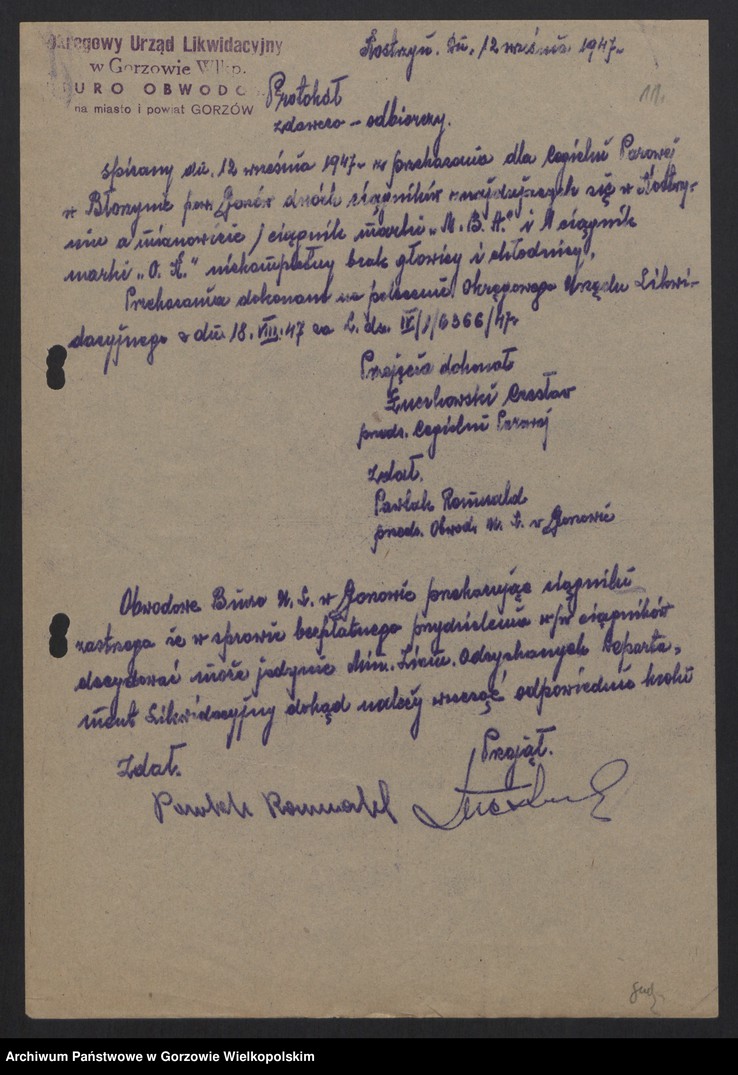 Okręgowy Urząd Likwidacyjny
w Gorzowie Wlkp.
BIURO OBWODO
na miasto i powiat GORZÓW
Kostrzyń. Dn. 12 września 1947.
11.
Protokół
zdawczo – odbiorczy.
spisany dn. 12 września 1947 przekazania dla Cegielni Parowej
w pow. Gorzów dwóch ciągników znajdujących się w Kostrzy-
niu a mianowicie 1 ciągnik marki „M. B. A." i 1 ciągnik
marki „O. K." niekompletny brak głowicy i chłodnicy.
Przekazania dokonano na polecenie Okręgowego Urzędu Likwi-
dacyjnego z dn. 18. VIII. 47 za L. dz. IV/1/6366/47
Przejęcia dokonał
Czesław
przeds. Cegielni Parowej
Zdał.
Pawlak Romuald
przeds. Obwod. U. L. w Gorzowie
Obwodowe Biuro U. L. w Gorzowie przekazując ciągniki
zastrzega że w sprawie bezpłatnego przydzielenia w/w ciągników
decydować może jedynie Min. Ziem. Odzyskanych Departa-
ment Likwidacyjny dokąd należy wnosić odpowiednie kroki
Zdał.
Przejął.
Pawlak Romuald
Archiwum Państwowe w Gorzowie Wielkopolskim